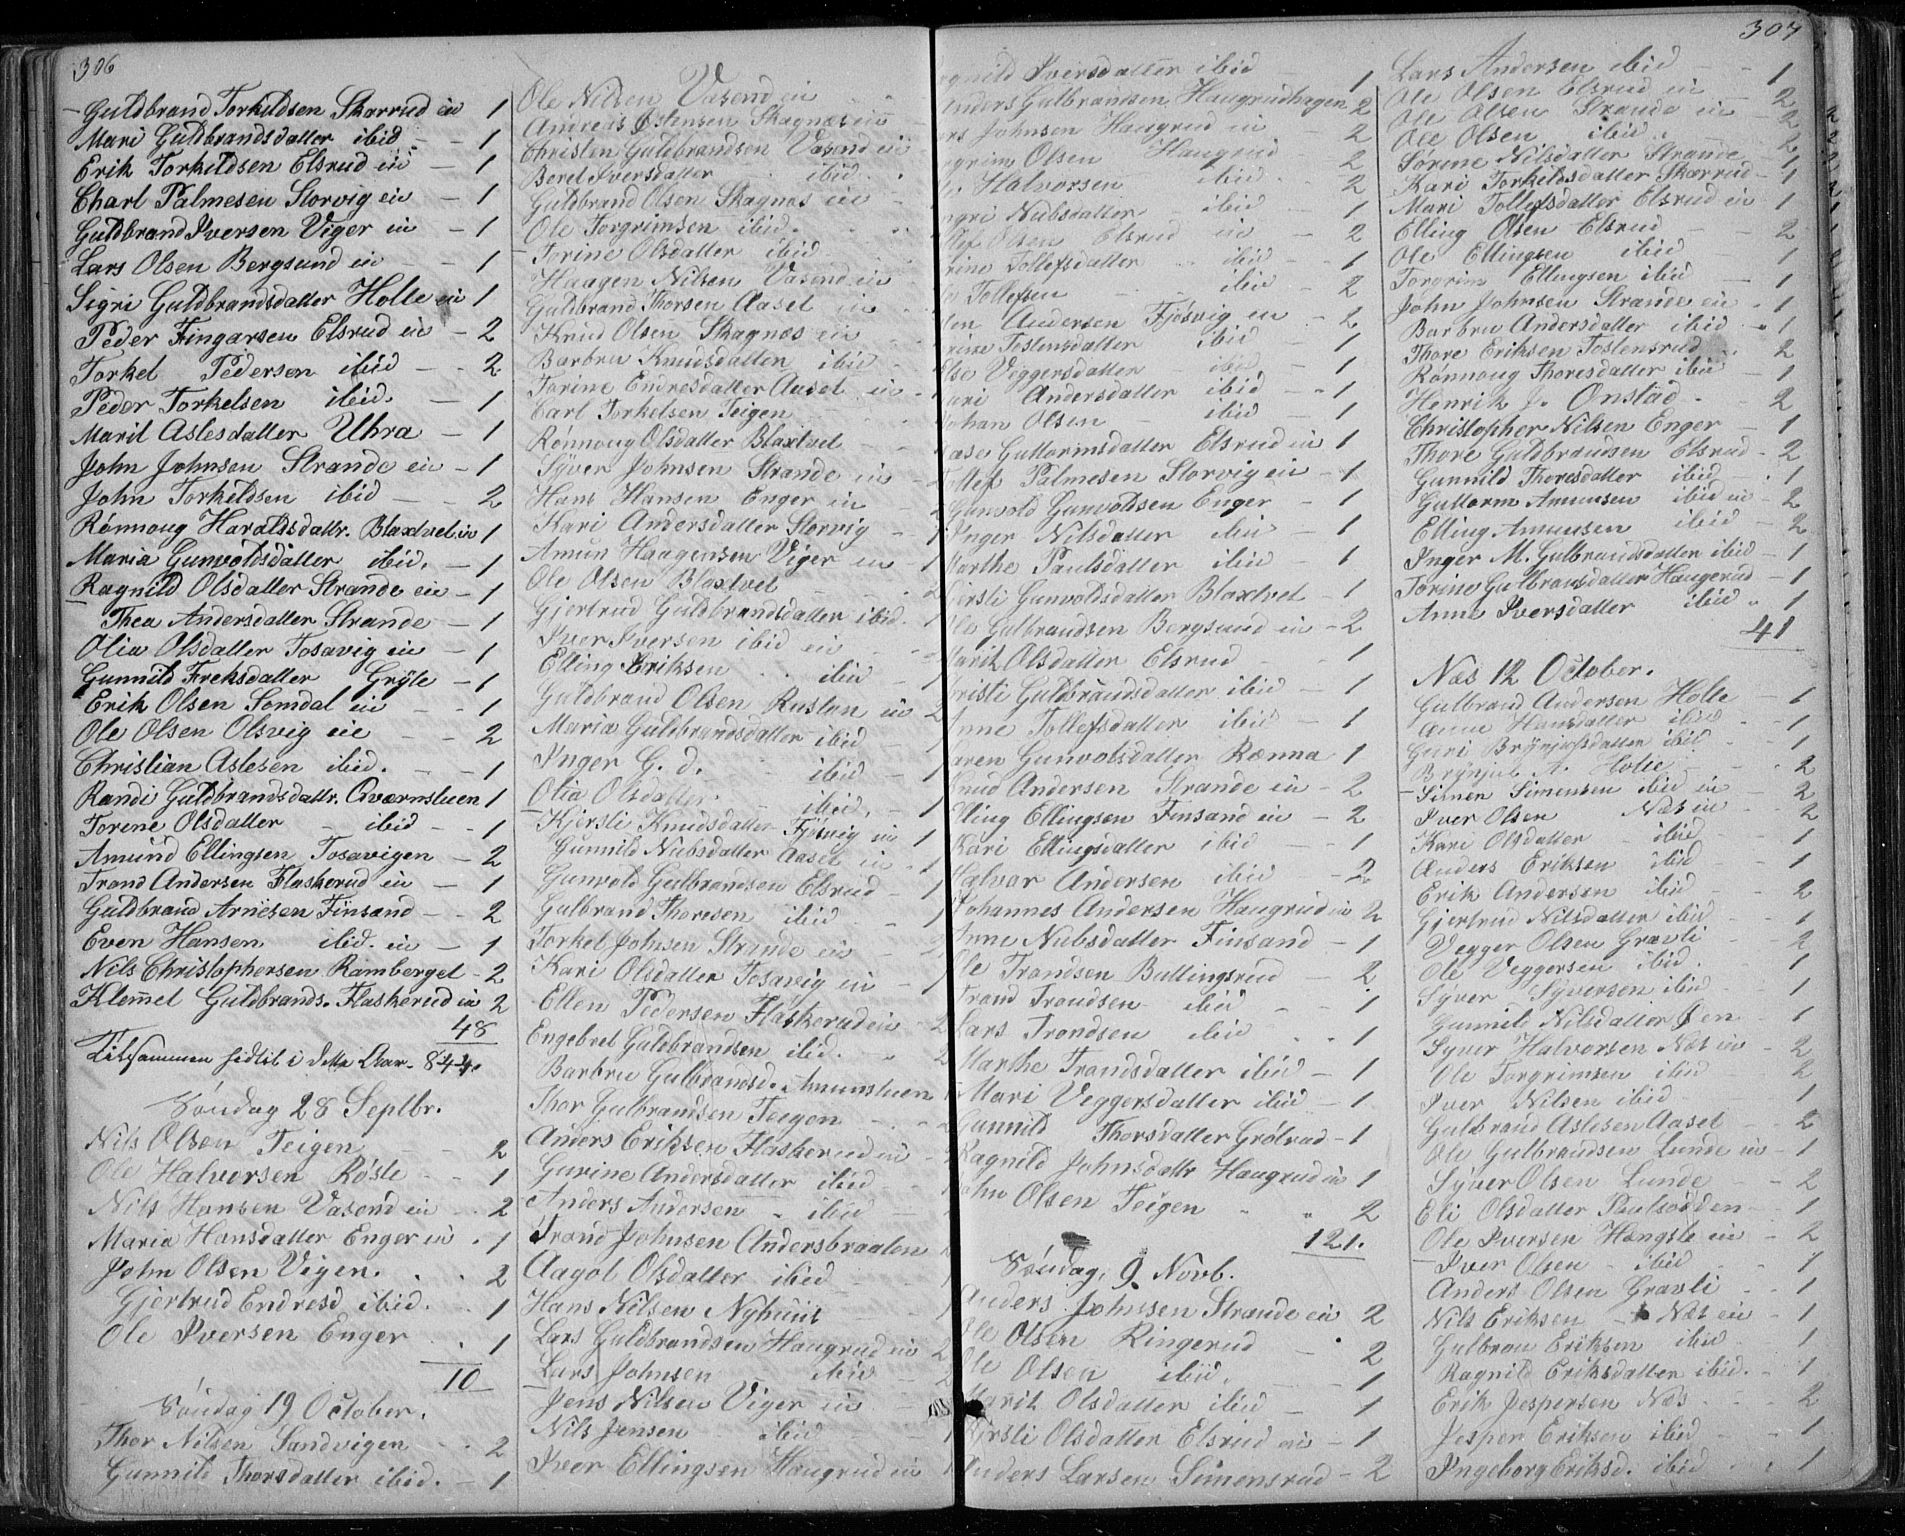 306
Guldbrand Torkildsen Skarrud ein 1
Mari Guldbrandsdatter ibid - 1
Erik Torkildsen Elsrud ein - 1
Charl Palmesen Storvig ein - 1
Guldbrand Iversen Viger ein - 1
Lars Olsen Bergsund ein - 1
Sigri Guldbrandsdatter Holte ein 1
Peder Fingarsen Elsrud ein - 2
Torkel Pedersen ibid - 2
Peder Torkelsen ibid. - 1
Marit Aslesdatter Uhra - 1
John Johnsen Strande ein - 1
John Torkildsen ibid - 2
Rønnoug Haraldsdatr. Blaxtvet ein 1
Maria Gunvoldsdatter ibid. - 1
Ragnild Olsdatter Strande ein - 1
Thea Andersdatter Strande - 1
Olia Olsdatter Tosavig ein - 1
Gunnild Freksdatter Gryte - 1
Erik Olsen Somdal ein - 1
Ole Olsen Olsvig ein - 2
Christian Aslesen ibid. - 1
Randi Guldbrandsdatr. Qværnstuen 1
Torene Olsdatter - ibid - 1
Amund Ellingsen Tosavigen - 2
Trond Andersen Flaskerud ein - 1
Guldbrand Arnesen Finsand - 2
Even Hansen ibid. ein - 1
Nils Christophersen Ramberget - 2
Klemmet Guldbrands. Flaskerud ein 2
48
Tilsammen hidtil i dette Aar - 844.
Søndag 28 Septbr.
Nils Olsen Teigen - 2
Ole Halvorsen Røste - 1
Nils Hansen Vasend ein - 2
Maria Hansdatter Enger ein . 1
John Olsen Vigen. . . 2
Gjertrud Endresd ibid. . 1
Ole Iversen Enger . 1
10
Søndag 19 October.
Thor Nilsen Sandvigen - 2
Gunnild Thorsdatter ibid. - 1
Ole Nilsen Vasend ein
Andreas Østensen Skagnæs ein
Christen Guldbrandsen Vasend ein
Beret Iversdatter ibid.
Guldbrand Olsen Skagnæs ein
Ole Torgrimsen ibid.
Torine Olsdatter ibid
Haagen Nilsen Vasend ein
Guldbrand Thorsen Aaset ein
Knud Olsen Skagnæs ein
Barbru Knudsdatter ibid
Torine Endresdatter Aaset ein - 1
Carl Torkelsen Teigen
Rønnoug Olsdatter Blaxtvet
Syver Johnsen Strande ein - 2
Hans Hansen Enger ein
Kari Andersdatter Storvig - 1
Amun Haagensen Viger ein - 1
Ole Olsen Blaxtvet - 2
Gjertrud Guldbrandsdatter ibid. 1
Iver Iversen ibid ein
Elling Eriksen ibid - 1
Guldbrand Olsen Rustan ein 2
Maria Guldbrandsdatter ibid - 1
Inger G. d. ibid - 1
Olia Olsdatter - ibid. - 1
Kjersti Knudsdatter Fjøsvig ein 1
Gunnild Nubsdatter Aaset ein - 1
Gunvold Gulbrandsen Elsrud - 1
Gulbrand Thoresen ibid - 1
Torkel Johnsen Strande ein - 2
Kari Olsdatter Tosavig ein - 1
Ellen Pedersen Flaskerud ein - 2
Engebret Guldbrandsen ibid. 2
Barbru Gulbrandsd. Amunstuen 1
Thor Gulbrandsen Teigen - 2
Anders Eriksen Flaskerud ein
Gurine Andersdatter ibid - 1
Anders Andersen - ibid
Trond Johnsen Andersbraaten
Aagot Olsdatter ibid - 1
Hans Nilsen Nyhuus - 1
Lars Guldbrandsen Haugrud ein 2
Lars Johnsen ibid - 2
Jens Nilsen Viger ein
Nils Jensen ibid - 1
Iver Ellingsen Haugrud ein 1
307
Ragnild Iversdatter ibid 1
Anders Gulbrandsen Haugrudhagen 2
Lars Johnsen Haugrud ein 2
Torgrim Olsen Haugrud 2
Ole Halvorsen ibid 2
Ingri Nubsdatter ibid 1
Tollef Olsen Elsrud ein - 2
Torine Tollefsdatter ibid - 1
Tollefsen ibid - 2
Andersen Fjøsvig ein - 2
Tostensdatter ibid 1
Else Veggersdatter ibid 1
Kari Andersdatter ibid - 1
Johan Olsen ibid - 1
Aase Guttormsdatter Elsrud ein 1
Tollef Palmesen Storvig ein - 1
Gunvold Gunvoldsen Enger - 1
Inger Nilsdatter ibid - 1
Marthe Paulsdatter ibid - 1
Kjersti Gunvoldsdatter Blaxtvet - 1
Ole Gulbrandsen Bergsund ein - 2
Marit Olsdatter Elsrud - 1
Kristi Guldbrandsdatter ibid - 1
Anne Tollefsdatter ibid - 1
Karen Gunvoldsdatter Rænna 1
Knud Andersen Strande ein - 2
Elling Ellingsen Finsand ein - 2
Kari Ellingsdatter ibid - 1
Halvor Andersen ibid - 2
Johannes Andersen Haugrud ein 2
Anne Nubsdatter Finsand - 1
Ole Trondsen Bullingsrud - 2
Trond Trondsen ibid - 1
Lars Trondsen ibid . . 1
Marthe Trondsdatter ibid - 1
Mari Veggersdatter ibid - 1
Gunnild Thorsdatter Grøtrud - 1
Ragnild Johnsdatr Haugrud ein 1
John Olsen Teigen " " 2
121.
Søndag, 9 Novb.
Anders Johnsen Strande ein 2
Ole Olsen Ringerud . 2
Ole Olsen ibid. - 1
Marit Olsdatter ibid - 1
Kjersti Olsdatter Elsrud ein - 1
Anders Larsen Simensrud - 2
Lars Andersen ibid - 1
Ole Olsen Elsrud ein - 2
Ole Olsen Strande ein - 2
Ole Olsen ibid. - 2
Sørine Nilsdatter Strande - 1
Kari Torkildsdatter Skarrud - 1
Mari Tollefsdatter Elsrud ein - 1
Elling Olsen Elsrud - 2
Ole Ellingsen ibid 1
Torgrim Ellingsen ibid - 1
John Johnsen Strande ein . 1
Barbru Andersdatter ibid - 1
Thore Eriksen Tostensrud . 2
Rønnoug Thoresdatter ibid - 1
Henrik J. Onstad. - 2
Christopher Nilsen Enger - 1
Thore Guldbrandsen Elsrud - 2
Gunnild Thoresdatter ibid . 1
Guttorm Amunsen ibid ein - 2
Elling Amunsen ibid - 2
Inger M. Gulbrandsdatter ibid - 1
Torine Gulbrandsdatter Haugerud - 1
Anne Iversdatter ibid " 1
41
Næs 12 October.
Gulbrand Andersen Holte - 1
Anne Hansdatter ibid - 1
Guri Brynjulfsdatter ibid - 1
Brynjul A. Holte - 2
Simen Simensen ibid ein - 2
Iver Olsen Næs ein - 2
Kari Olsdatter - ibid - 1
Anders Eriksen ibid - 1
Erik Andersen ibid - 2
Gjertrud Nilsdatter ibid - 1
Vegger Olsen Gravli - 2
Ole Veggersen ibid. 1
Syver Syversen ibid - 1
Gunnild Nilsdatter Øen - 1
Syver Halvorsen Næs ein - 2
Ole Torgrimsen ibid - 2
Iver Nilsen ibid - 1
Gulbrand Aslesen Aaset - 2
Ole Gulbrandsen Lunde ein - 1
Syver Olsen Lunde - 2
Eli Olsdatter Paulsødden - 1
Ole Iversen Hængsle ein - 2
Iver Olsen - ibid - 1
Anders Olsen Gravli - 1
Nils Eriksen - Næs ein - 1
Gulbran Eriksen ibid - 1
Ragnild Eriksdatter ibid. - 1
Erik Jespersen Næs - 2
Jesper Eriksen ibid - 1
Ingeborg Eriksd. ibid . 1